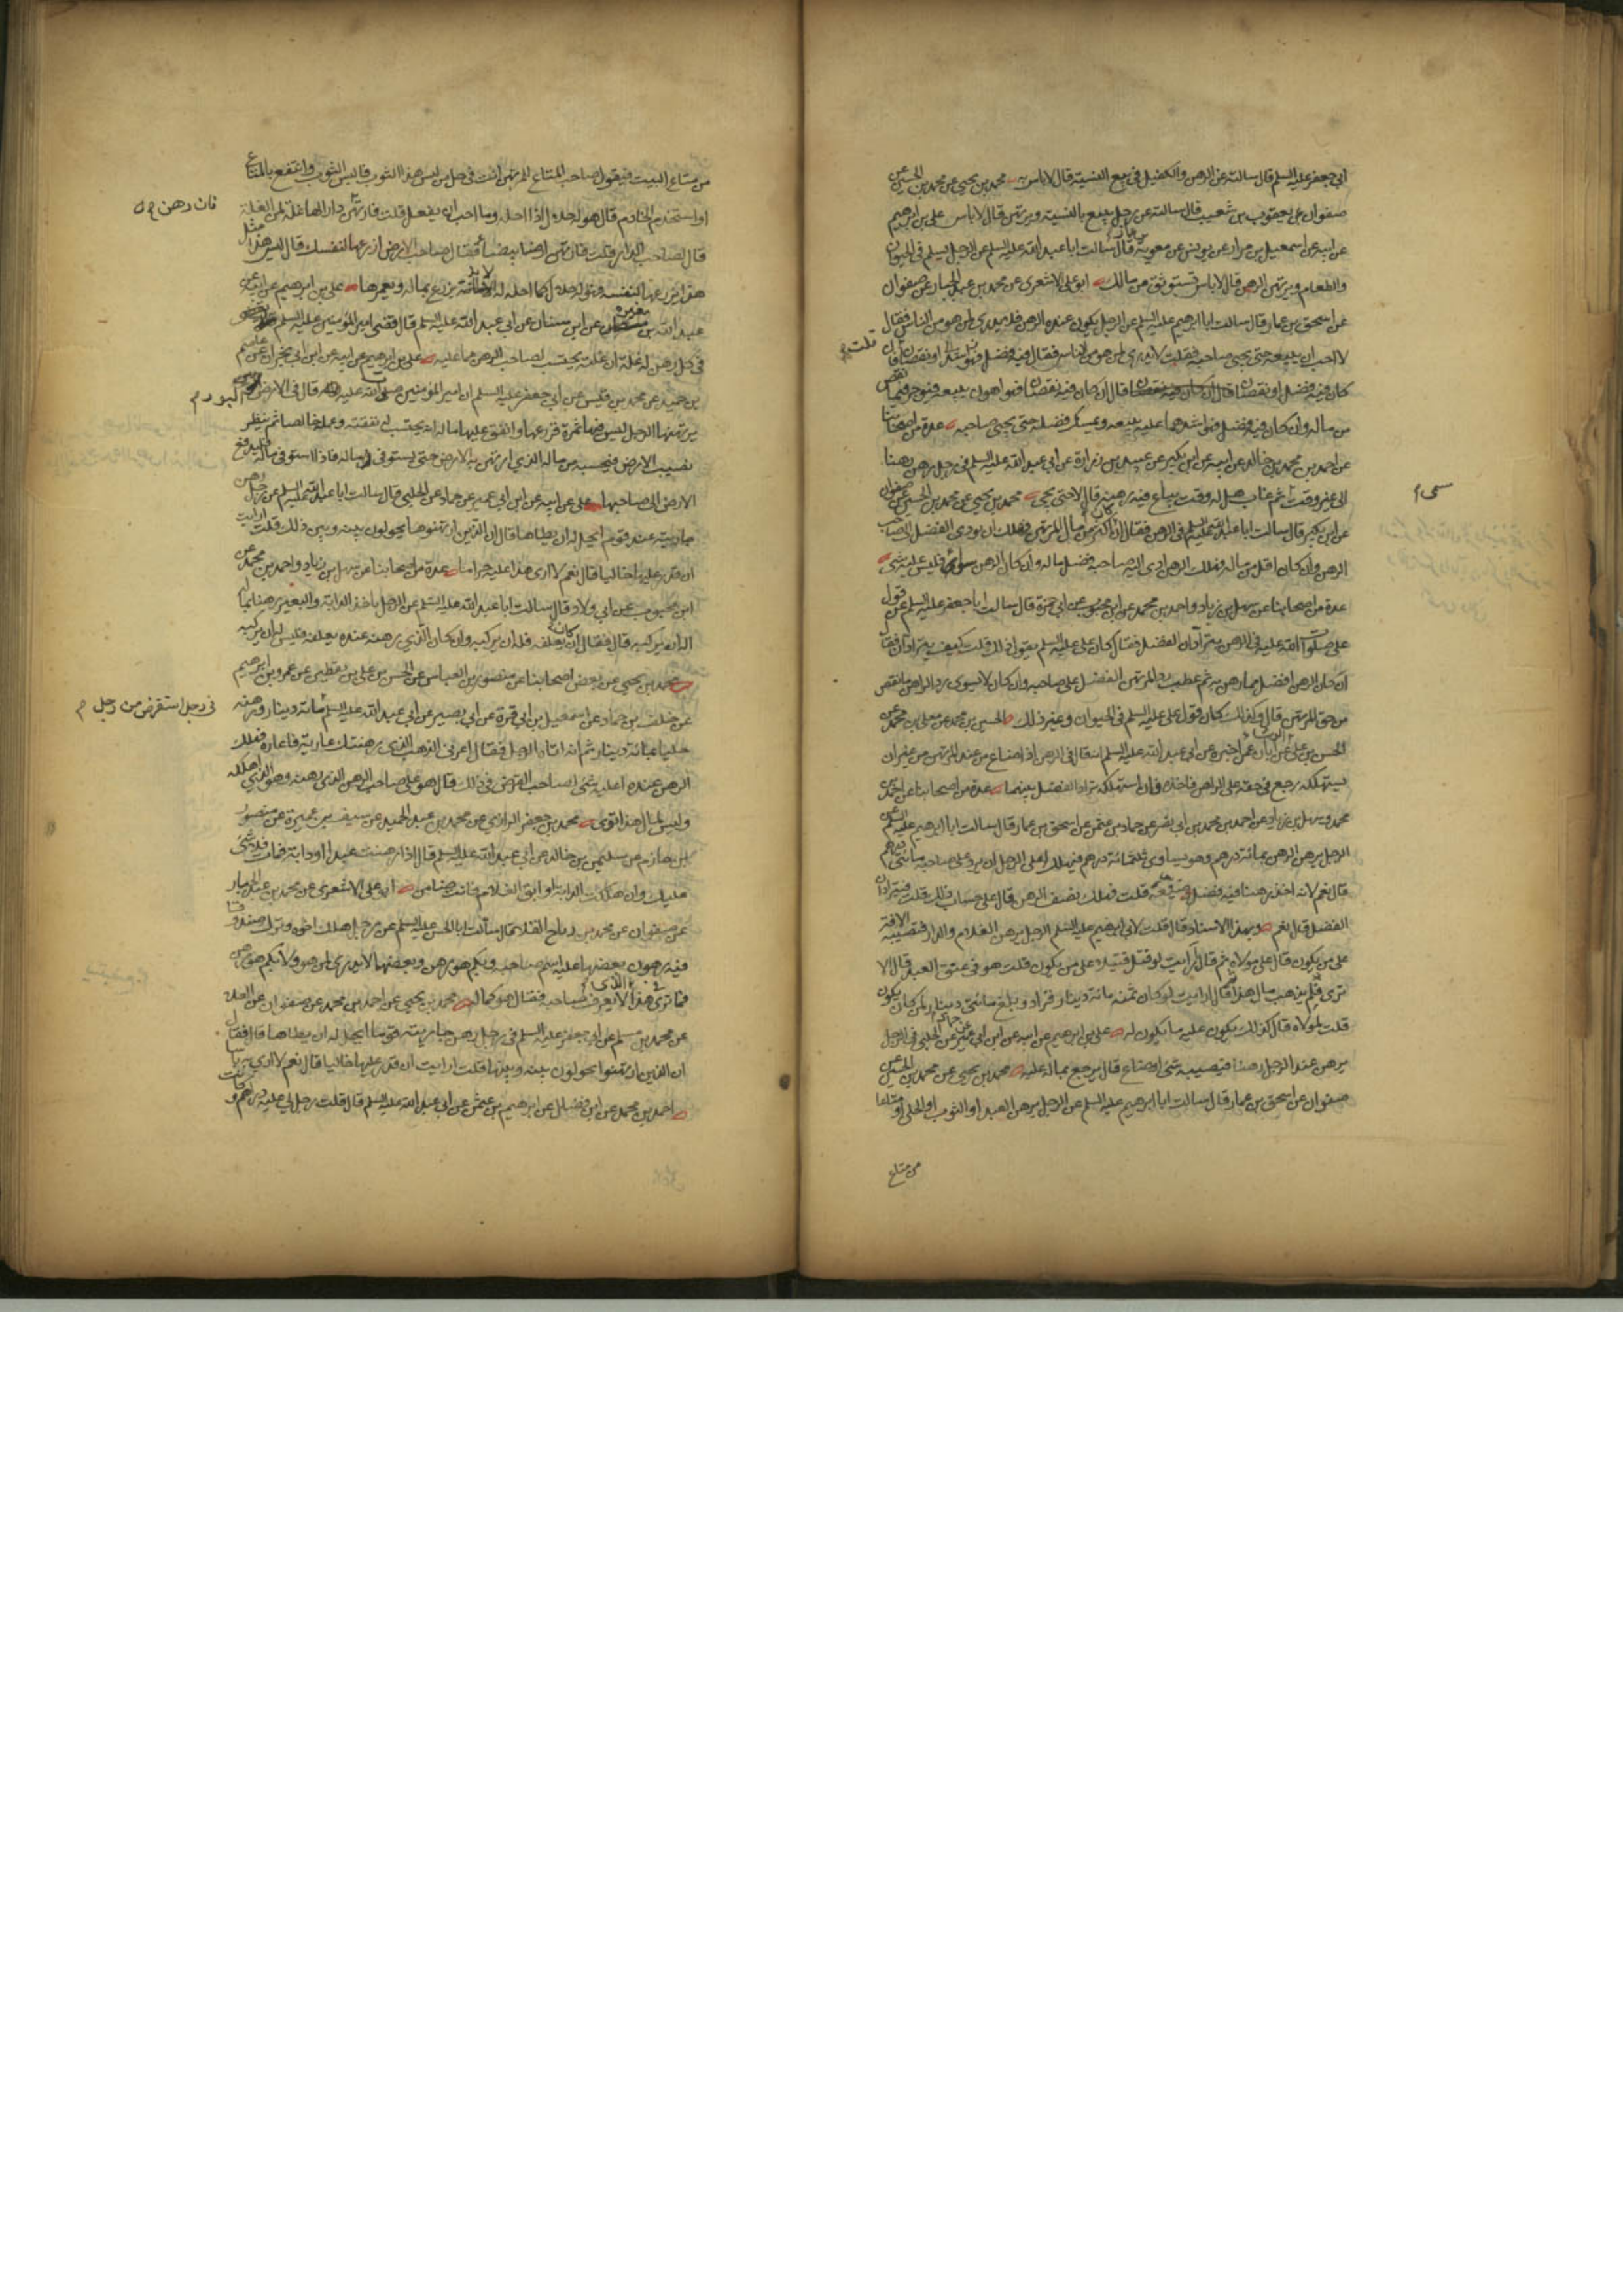 ابي جعفر عليه السلم قال سالته عن الرهن والكفيل في بيع النسية قال لاباس به محمد بن يحيى عن محمد بن الحسين عن
صفوان عن يعقوب بن شعيب قال سالته عن رجل يبيع بالنسية ويرتهن قال لاباس علي بن ابرهيم
عن ابيه عن اسمعيل بن مرار عن يونس عن معوية بن عمار قال سالت ابا عبد الله عليه السلم عن الرجل يسلم في الحيوان
والطعام ويرتهن الرهن قال لاباس تستوثق من مالك ابو علي الاشعري عن محمد بن عبد الجبار عن صفوان
عن اسحق بن عمار قال سالت ابا ابرهيم عليه السلم عن الرجل يكون عنده الرهن فلا يدري لمن هو من الناس فقال
لا احب ان يبيعه حتى يجئ صاحبه فقلت لا يدري لمن هو من الناس فقال فيه فضل او نقصان
قلت فان
كان فيه فضل او نقصان قال ان كان فيه نقصان فهو اهون يبيعه فيوجر فيما نقص
من ماله وان كان فيه فضل فهو اشدهما عليه يبيعه ويمسك فضله حتى يجئ صاحبه عدة من اصحابنا
عن احمد بن محمد بن خالد عن ابيه عن ابن بكير عن عبيد بن زرارة عن ابي عبد الله عليه السلم في رجل رهن رهنا
الى غير وقت ثم غاب هل له وقت يباع فيه رهنه قال لا حتى يجئ محمد بن يحيى عن محمد بن الحسين عن صفوان
عن ابن بكير قال سالت ابا عبد الله عليه السلم في الرهن فقال ان كان اكثر من مال المرتهن فهلك ان يودي الفضل الى صاحب
الرهن وان كان اقل من ماله فهلك الرهن ادى اليه صاحبه فضل ماله وان كان الرهن سواء فليس عليه شئ
عدة من اصحابنا عن سهل بن زياد واحمد بن محمد عن ابن محبوب عن ابي حمزة قال سالت ابا جعفر عليه السلم عن قول
علي صلوات الله عليه في الرهن يترادان الفضل فقال كان علي عليه السلم يقول ذلك قلت كيف يترادان فقال
ان كان الرهن افضل مما رهن به ثم عطب رد المرتهن الفضل على صاحبه وان كان لا يسوي رد الراهن ما نقص
من حق المرتهن قال وكذلك كان قول علي عليه السلم في الحيوان وغير ذلك الحسين بن محمد عن معلى بن محمد عن
الحسن بن علي الوشاء عن ابان عمن اخبره عن ابي عبد الله عليه السلم انه قال في الرهن اذا ضاع من عند المرتهن من غير ان
يستهلكه رجع في حقه على الراهن فاخذه فان استهلكه ترادا الفضل بينهما عدة من اصحابنا عن احمد بن
محمد وسهل بن زياد عن احمد بن محمد بن ابي نصر عن حماد بن عثمن عن اسحق بن عمار قال سالت ابا ابرهيم عليه السلم عن
الرجل يرهن الرهن بمائة درهم وهو يساوي ثلثمائة درهم فيهلك اعلى الرجل ان يرد على صاحبه مائتي درهم
قال نعم لانه اخذ رهنا فيه فضل وضيعه قلت فهلك نصف الرهن قال على حساب ذلك قلت فيترادان
الفضل قال نعم وبهذا الاسناد قال قلت لابي ابرهيم عليه السلم الرجل يرهن الغلام والدار فتصيبه الافة
على من يكون قال على مولاه ثم قال ارايت لو قتل قتيلا على من يكون قلت هو في عنق العبد قال الا
ترى فلم يذهب مال هذا ثم قال ارايت لو كان ثمنه مائة دينار فزاد وبلغ مائتي دينار لمن كان يكون
قلت لمولاه قال كذلك يكون عليه ما يكون له علي بن ابرهيم عن ابيه عن ابن ابي عمير عن حماد عن الحلبي في الرجل
يرهن عند الرجل رهنا فيصيبه شئ او ضاع قال يرجع بماله عليه محمد بن يحيى عن محمد بن الحسين عن
صفوان عن اسحق بن عمار قال سالت ابا ابرهيم عليه السلم عن الرجل يرهن العبد او الثوب او الحلي او متاعا
من متاع
من متاع البيت فيقول صاحب المتاع للمرتهن انت في حل من لبس هذا الثوب فالبس الثوب وانتفع بالمتاع
او استخدم الخادم قال هو له حلال اذا احله وما احب ان يفعل قلت فارتهن دارا لها غلة لمن الغلة
فان رهن
قال لصاحب الدار قلت فارتهن ارضا بيضاء فقال صاحب الارض ازرعها لنفسك قال ليس هذا مثل
هذا يزرعها لنفسه فهو له حلال كما احله له لانه يزرع بماله ويعمرها علي بن ابرهيم عن ابيه عن
عبد الله بن المغيرة عن ابن سنان عن ابي عبد الله عليه السلم قال قضى امير المؤمنين عليه السلم
في كل رهن له غلة ان غلته تحتسب لصاحب الرهن مما عليه علي بن ابرهيم عن ابيه عن ابن ابي نجران عن عاصم
بن حميد عن محمد بن قيس عن ابي جعفر عليه السلم ان امير المؤمنين صلوات الله عليه قال في الارض
البور
يرتهنها الرجل ليس فيها ثمرة فزرعها وانفق عليها ماله انه يحتسب له نفقته وعمله خالصا ثم ينظر
نصيب الارض فيحسبه من ماله الذي ارتهن به الارض حتى يستوفي ماله فاذا استوفى ماله فليدفع
الارض الى صاحبها علي عن ابيه عن ابن ابي عمير عن حماد عن الحلبي قال سالت ابا عبد الله عليه السلم عن رجل رهن
جاريته عند قوم ايحل له ان يطاها قال ان الذين ارتهنوها يحولون بينه وبين ذلك قلت ارايت
ان قدر عليها خاليا قال نعم لا ارى هذا عليه حراما عدة من اصحابنا عن سهل بن زياد واحمد بن محمد عن
ابن محبوب عن ابي ولاد قال سالت ابا عبد الله عليه السلم عن الرجل ياخذ الدابة والبعير رهنا بماله
اله ان يركبه قال فقال ان كان يعلفه فله ان يركبه وان كان الذي رهنه عنده يعلفه فليس له ان يركبه
محمد بن يحيى عن بعض اصحابنا عن منصور بن العباس عن الحسن بن علي بن يقطين عن عمرو بن ابرهيم
عن خلف بن حماد عن اسمعيل بن ابي قرة عن ابي بصير عن ابي عبد الله عليه السلم مائة دينار ورهنه
في رجل استقرض من رجل
حليا بمائة دينار ثم انه اتاه الرجل فقال اعرني الذهب الذي رهنتك عارية فاعاره فهلك
الرهن عنده اعليه شئ لصاحب القرض في ذلك قال هو على صاحب الرهن الذي رهنه وهو الذي اهلكه
وليس لمال هذا توى محمد بن جعفر الرازي عن محمد بن عبد الحميد عن سيف بن عميرة عن منصور
بن حازم عن سليمن بن خالد عن ابي عبد الله عليه السلم قال اذا رهنت عبدا او دابة فمات فلا شئ
عليك وان هلكت الدابة او ابق الغلام فانت ضامن ابو علي الاشعري عن محمد بن عبد الجبار
عن صفوان عن محمد بن رباح القلا قال سالت ابا الحسن عليه السلم عن رجل هلك اخوه وترك صندوقا
فيه رهون بعضها عليه اسم صاحبه وبكم هو رهن وبعضها لا يدري لمن هو ولا بكم هو رهن
فما ترى في هذا الذي لا يعرف صاحبه فقال هو كماله محمد بن يحيى عن احمد بن محمد عن صفوان عن العلاء
عن محمد بن مسلم عن ابي جعفر عليه السلم في رجل رهن جاريته قوما ايحل له ان يطاها قال فقال
ان الذين ارتهنوا يحولون بينه وبينها قلت ارايت ان قدر عليها خاليا قال نعم لا ارى به باسا
احمد بن محمد عن ابن فضال عن ابرهيم بن عثمن عن ابي عبد الله عليه السلم قال قلت رجل لي عليه دراهم و